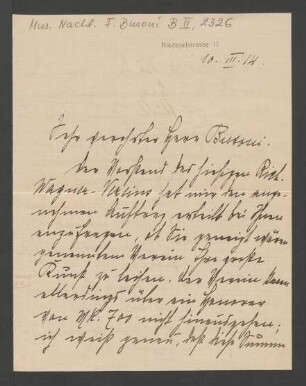 Mus. Nachl. F. Busoni B II, 2326
Niederelstrasse 12
10. III. 14.
Sehr geehrter Herr Busoni.
Der Vorstand des hiesigen Rich.
Wagner-Vereins hat mir den ange-
nehmen Auftrag erteilt bei Ihnen
anzufragen, ob Sie geneigt wären
genanntem Verein Ihre große
Kunst zu leihen. Der Verein kann
allerdings über ein Honorar
von Mk. 700 nicht hinausgehen;
ich weiß genau, daß diese Summe